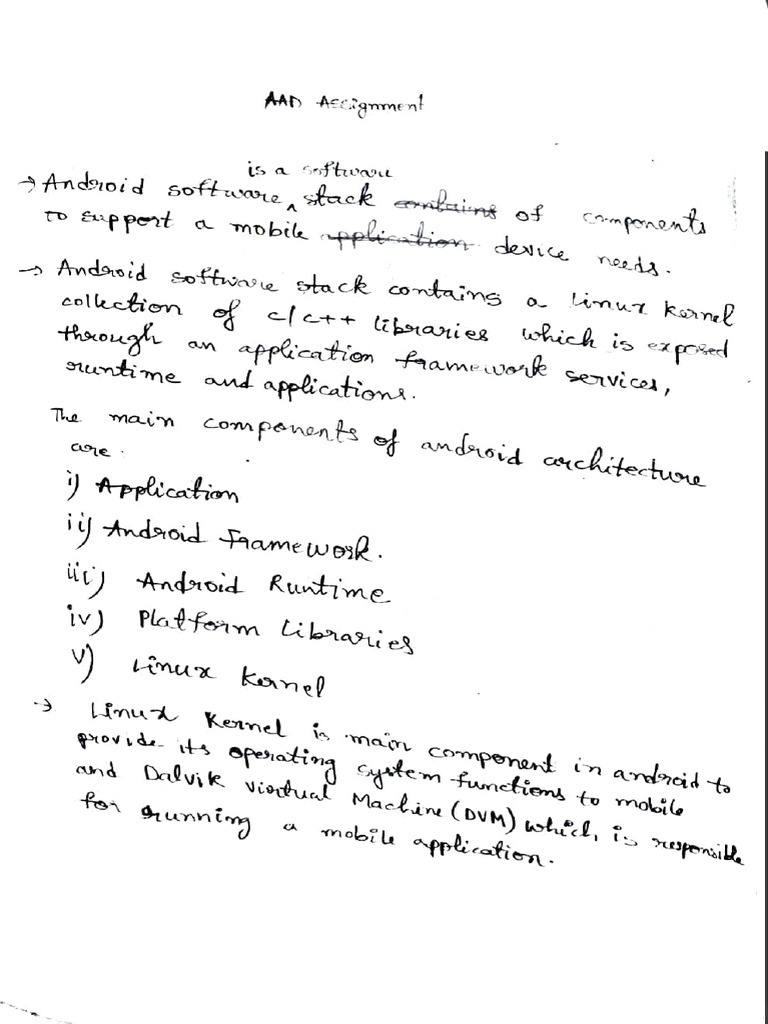 AAD Assignment
is a software
→ Android software ^ stack contains of components
to support a mobile application device needs.
→ Android software stack contains a linux kernel
collection of c/c++ libraries which is exposed
through an application framework services,
runtime and applications.
The main components of android architecture
are.
i) Application
ii) Android framework.
iii) Android Runtime
iv) Platform Libraries
v) Linux kernel
→ Linux kernel is main component in android to
provide its operating system functions to mobile
and Dalvik virtual Machine (DVM) which, is responsible
for running a mobile application.